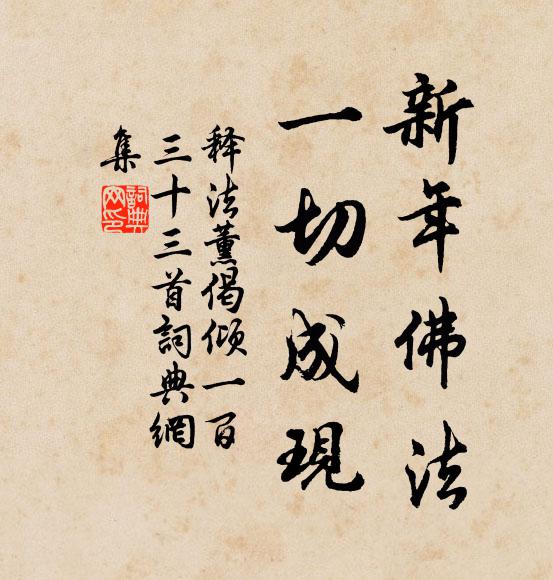 新年佛法
一切成現
释法薰偈倾一百
三十三首詞典網
集
詞典網印